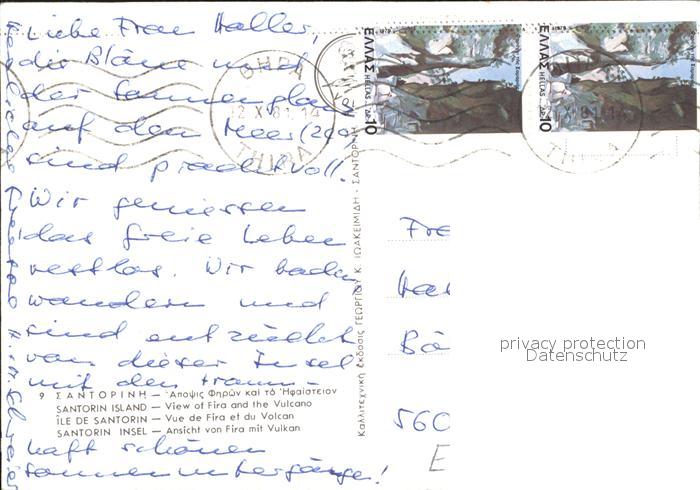 Liebe Frau Haller,
die Bläue und
der Sonnenglanz
auf dem Meer (20°)
sind prachtvoll.
Wir geniessen
das freie Leben
restlos. Wir baden,
wandern und
sind entzückt
von dieser Insel
mit den traum-
haft schönen
Sonnenuntergänge!
9 ΣΑΝΤΟΡΙΝΗ — Ἄποψις Φηρῶν καὶ τὸ Ἡφαίστειον
SANTORIN ISLAND — View of Fira and the Vulcano
ÎLE DE SANTORIN — Vue de Fira et du Volcan
SANTORIN INSEL — Ansicht von Fira mit Vulkan
Καλλιτεχνική ἔκδοσις ΓΕΩΡΓΙΟΥ Κ. ΙΩΑΚΕΙΜΙΔΗ - ΣΑΝΤΟΡΙΝΗ
ΕΛΛΑΣ
HELLAS
ΔΡ. 10
ΕΛΛΑΣ
HELLAS
ΔΡ. 10
ΘΗΡΑ
2 X 81 14
THIRA
Fra
Ha
Bä
560
E
privacy protection
Datenschutz